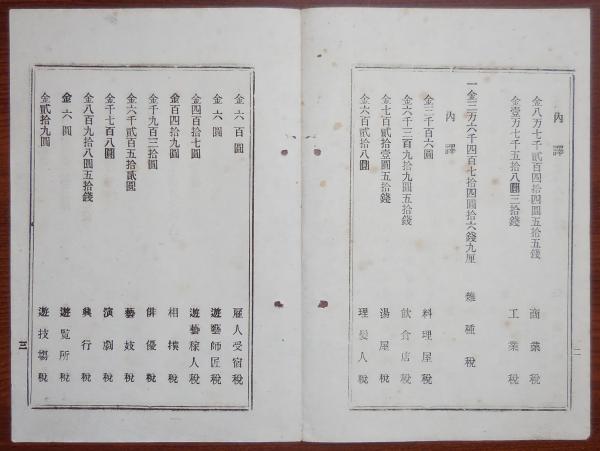 內譯
金八万七千貳百四拾四圓五拾五錢 商業稅
金壹万七千五拾八圓三拾錢 工業稅
一金三万六千四百七拾四圓拾六錢九厘 雜種稅
內譯
金三千百六圓 料理屋稅
金六千三百九拾九圓五拾錢 飮食店稅
金七百貳拾壹圓五拾錢 湯屋稅
金六百貳拾八圓 理髮人稅
二
金六百圓 雇人受宿稅
金六圓 遊藝師匠稅
金四百拾七圓 遊藝稼人稅
金百四拾九圓 相撲稅
金千九百三拾圓 俳優稅
金六千貳百五拾貳圓 藝妓稅
金千七百八圓 演劇稅
金八百九拾八圓五拾錢 興行稅
金六圓 遊覧所稅
金貳拾九圓 遊技場稅
三